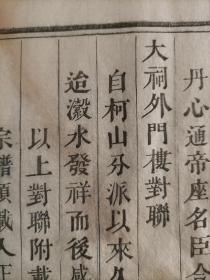 丹心通帝座名臣
大祠外門樓對聯
自柯山分派以來久
迨瀫水發祥而後咸
以上對聯附載
宗譜願載入正